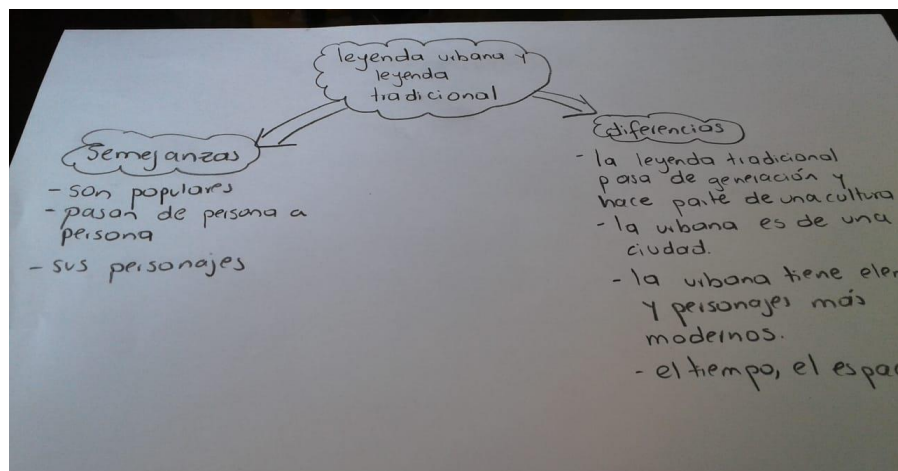 leyenda urbana y
leyenda
tradicional
Semejanzas
- son populares
- pasan de persona a
persona
- sus personajes
diferencias
- la leyenda tradicional
pasa de generación y
hace parte de una cultura
- la urbana es de una
ciudad.
- la urbana tiene
y personajes más
modernos.
- el tiempo, el